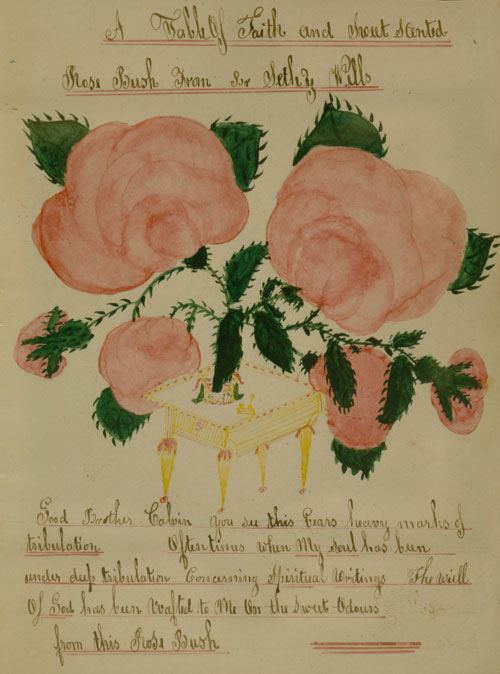 A Table Of Faith and Sweet Scented
Rose Bush From Br Seth Y Wells
Good Brother Calvin you see this bears heavy marks of
tribulation Often times when My soul has been
under deep tribulation Concerning Spiritual Writings The will
Of God has been Wafted to Me On the Sweet Odours
from this Rose Bush